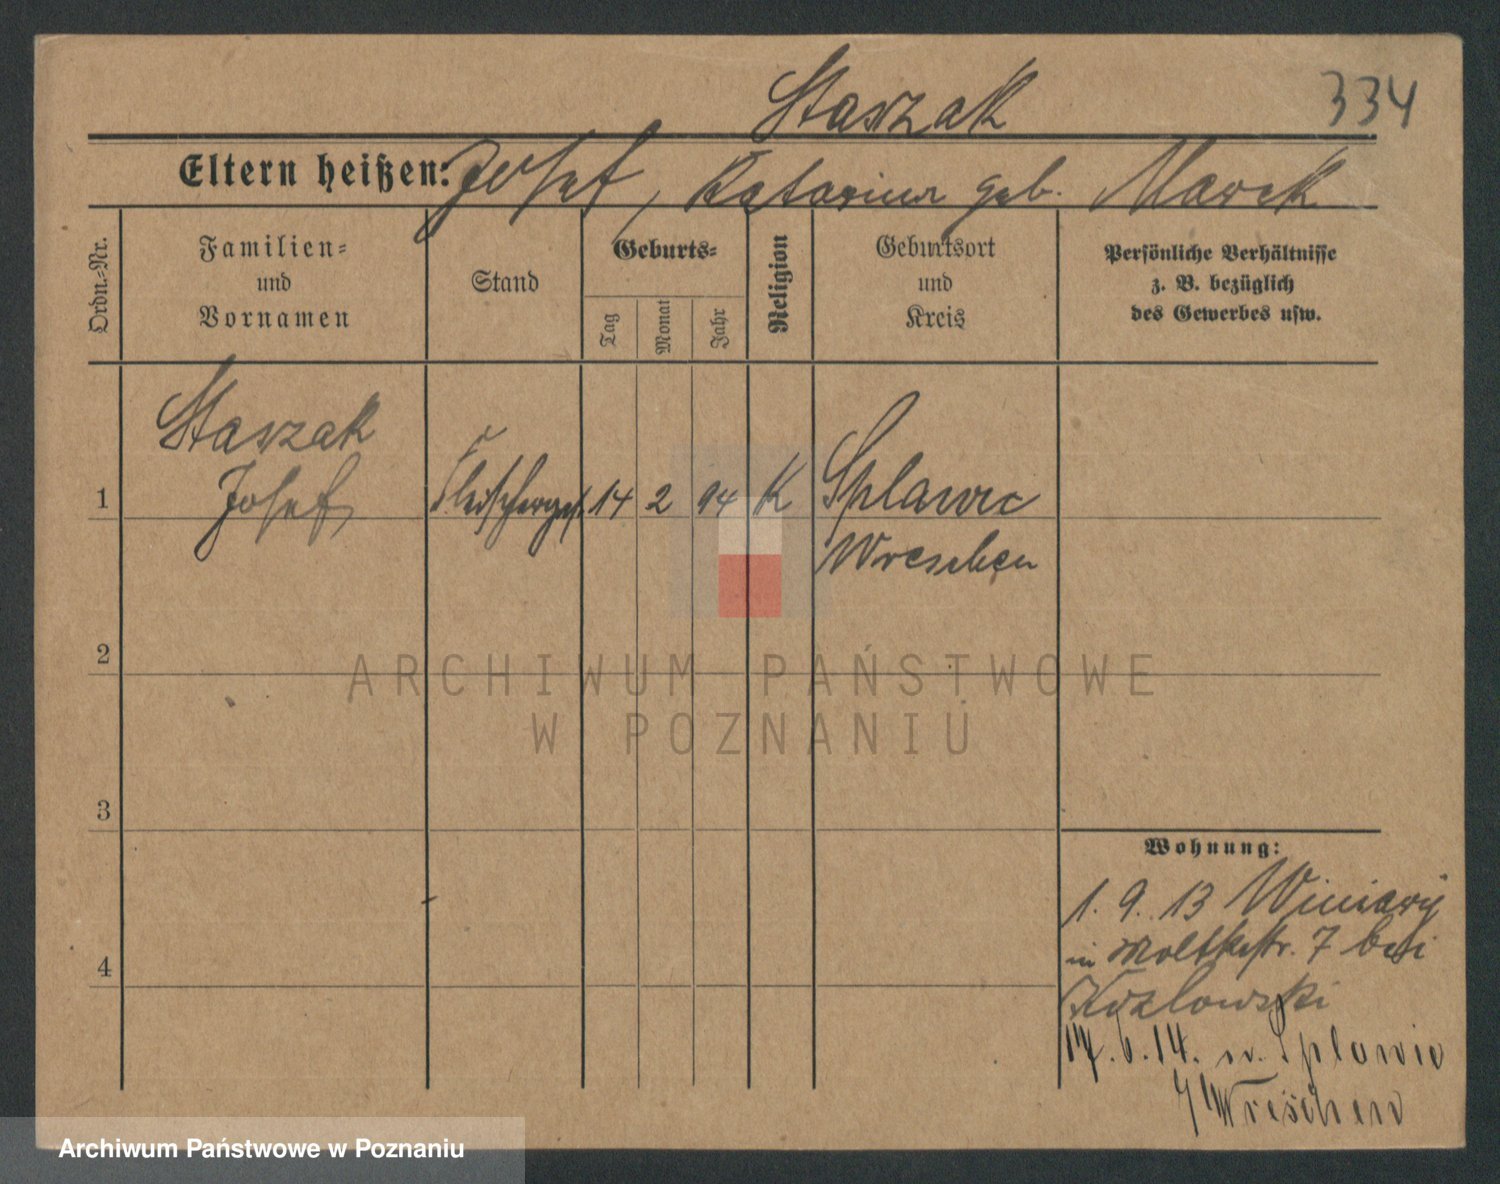 Staszak
334
Eltern heißen: Josef, Katarina geb. Marek
Ordn.-Nr.
Familien-
und
Vornamen
Stand
Geburts-
Tag
Monat
Jahr
Religion
Geburtsort
und
Kreis
Persönliche Verhältnisse
z. B. bezüglich
des Gewerbes usw.
Staszak
Josef
1
Fleischerges. 14 2 94 K Splawie
Wreschen
2
ARCHIWUM PAŃSTWOWE
W POZNANIU
3
Wohnung:
1. 9. 13 Winiary
in Moltkestr. 7 bei
Kozlowski
4
17. 6. 14. n. Splawie
Wreschen
Archiwum Państwowe w Poznaniu